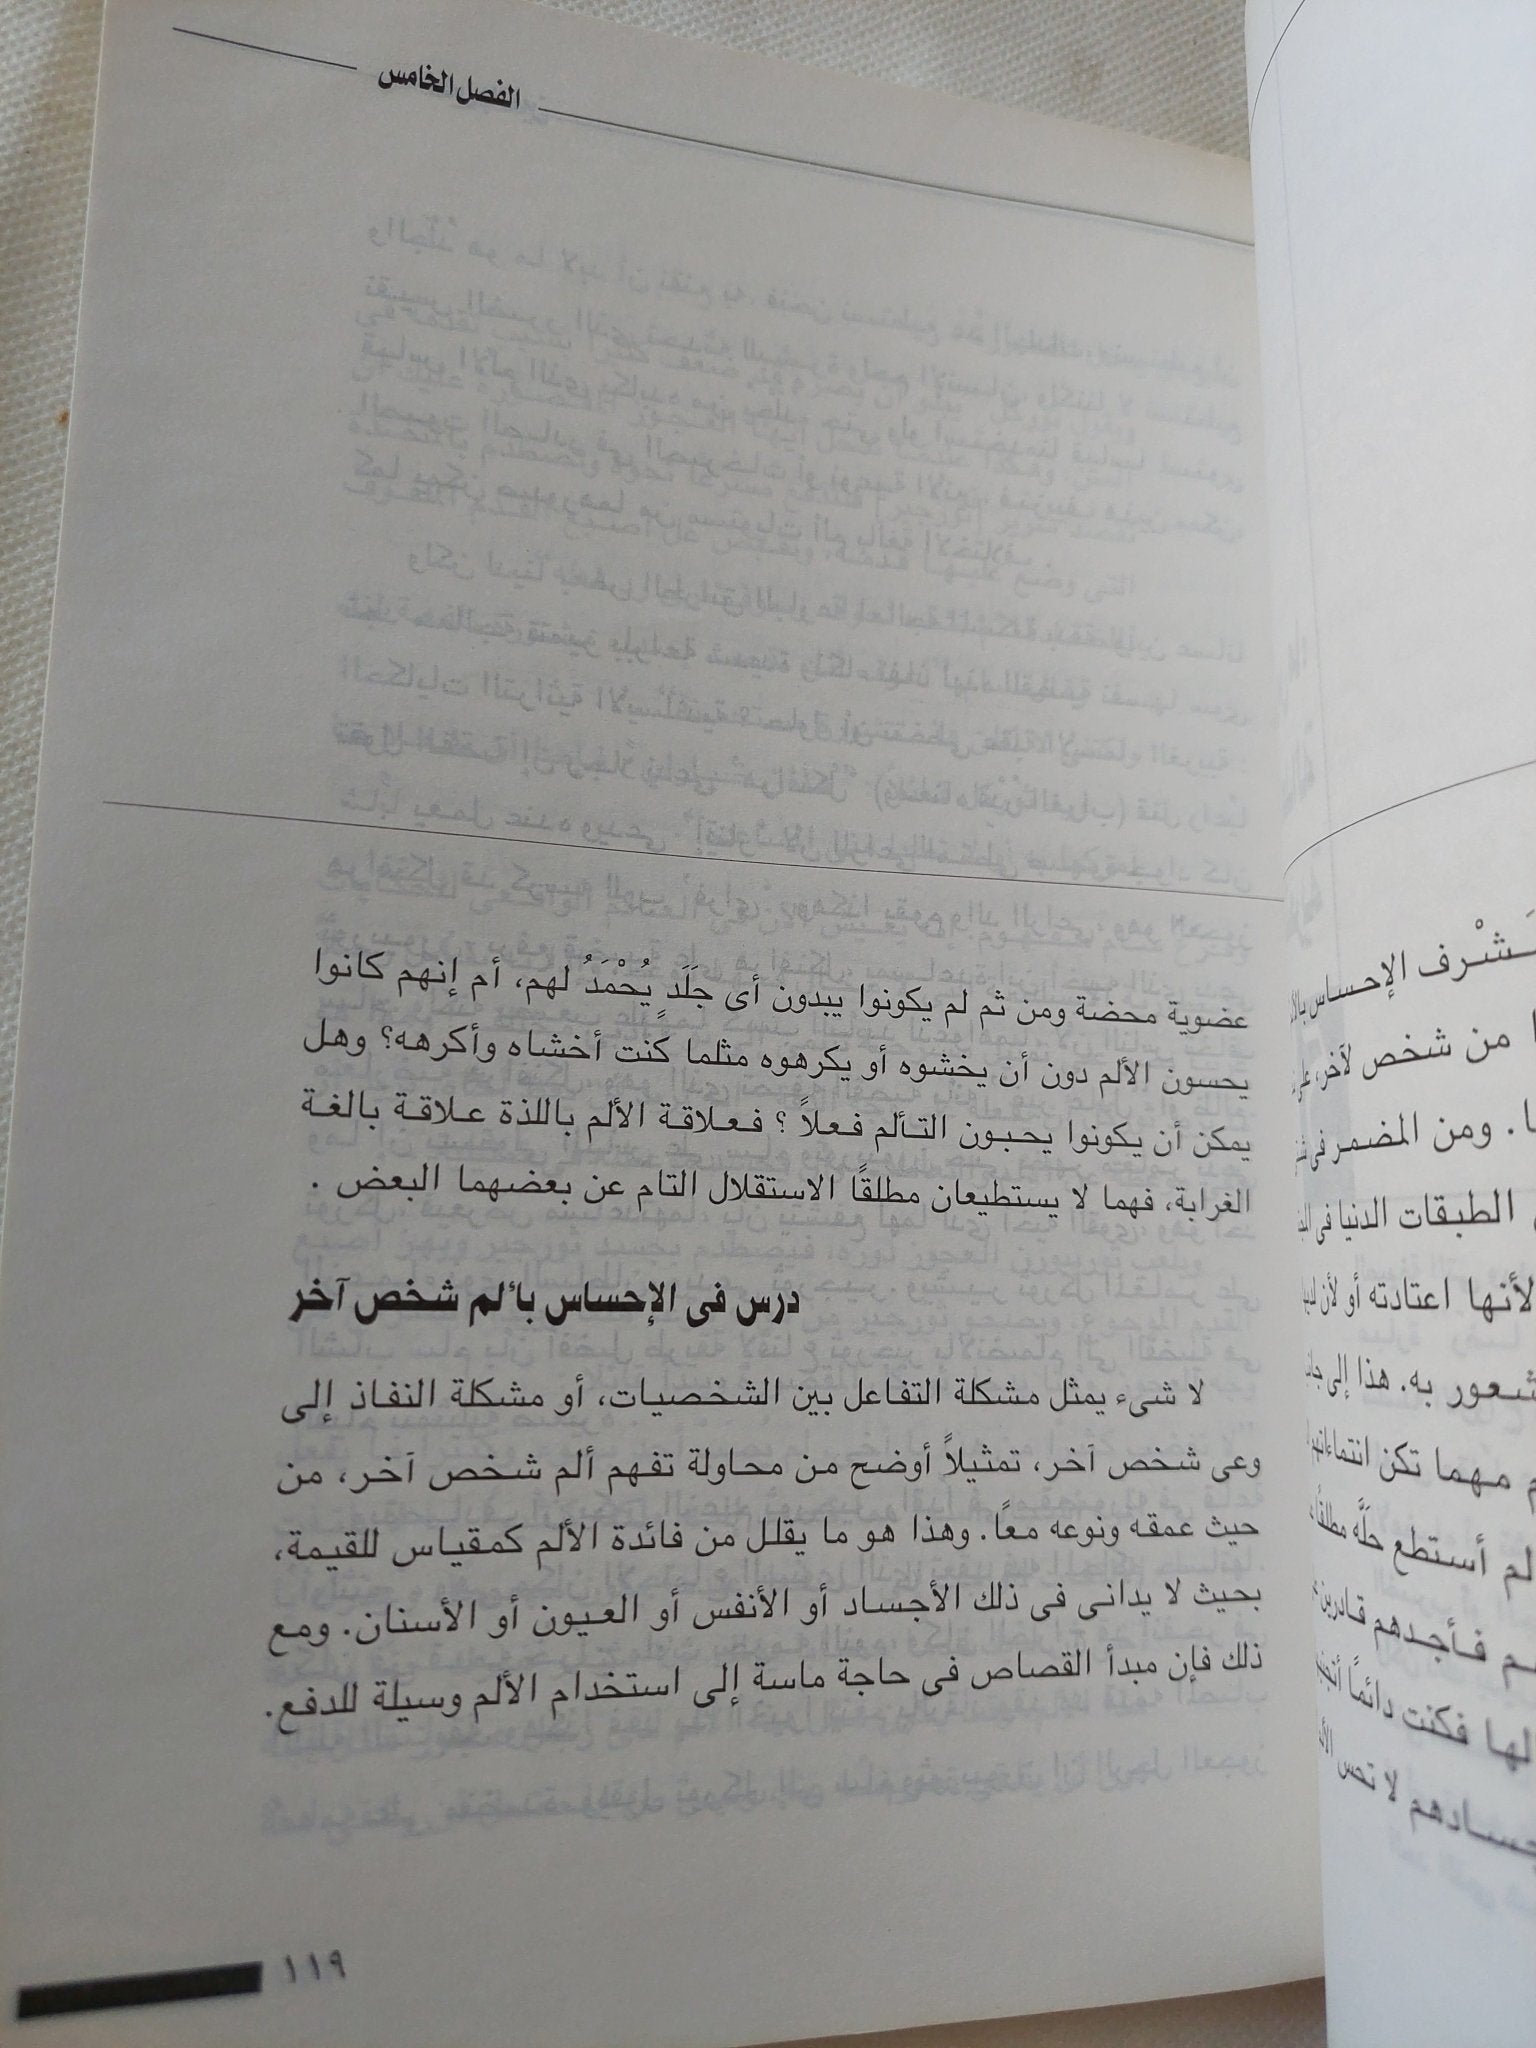 الفصل الخامس
عضوية محضة ومن ثم لم يكونوا يبدون أى جَلَدٍ يُحْمَدُ لهم، أم إنهم كانوا
يحسون الألم دون أن يخشوه أو يكرهوه مثلما كنت أخشاه وأكرهه؟ وهل
يمكن أن يكونوا يحبون التألم فعلاً ؟ فعلاقة الألم باللذة علاقة بالغة
الغرابة، فهما لا يستطيعان مطلقًا الاستقلال التام عن بعضهما البعض .
درس فى الإحساس بألم شخص آخر
لا شىء يمثل مشكلة التفاعل بين الشخصيات، أو مشكلة النفاذ إلى
وعى شخص آخر، تمثيلاً أوضح من محاولة تفهم ألم شخص آخر، من
حيث عمقه ونوعه معًا. وهذا هو ما يقلل من فائدة الألم كمقياس للقيمة،
بحيث لا يدانى فى ذلك الأجساد أو الأنفس أو العيون أو الأسنان. ومع
ذلك فإن مبدأ القصاص فى حاجة ماسة إلى استخدام الألم وسيلة للدفع.
١١٩
الإحساس
من شخص لآخر،
. ومن المضمر فى
الطبقات الدنيا فى
لأنها اعتادته أو لأن
شعور به. هذا إلى
مهما تكن
لم أستطع حلَّه مطلقًا
فأجدهم قادرين
لها فكنت دائمًا
لا تحس